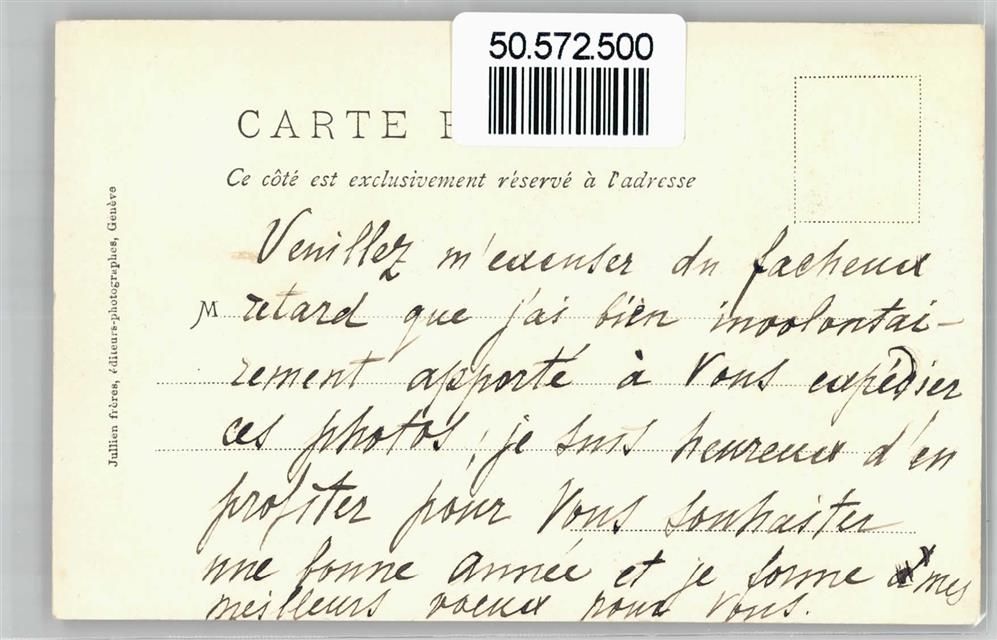 50.572.500
CARTE P
Ce côté est exclusivement réservé à l'adresse
Jullien frères, éditeurs-photographes, Genève
Veuillez m'excuser du facheux
M retard que j'ai bien involontai-
rement apporté à Vous expédier
ces photos, je suis heureux d'en
profiter pour Vous souhaiter
une bonne année et je forme mes
meilleurs voeux pour Vous.